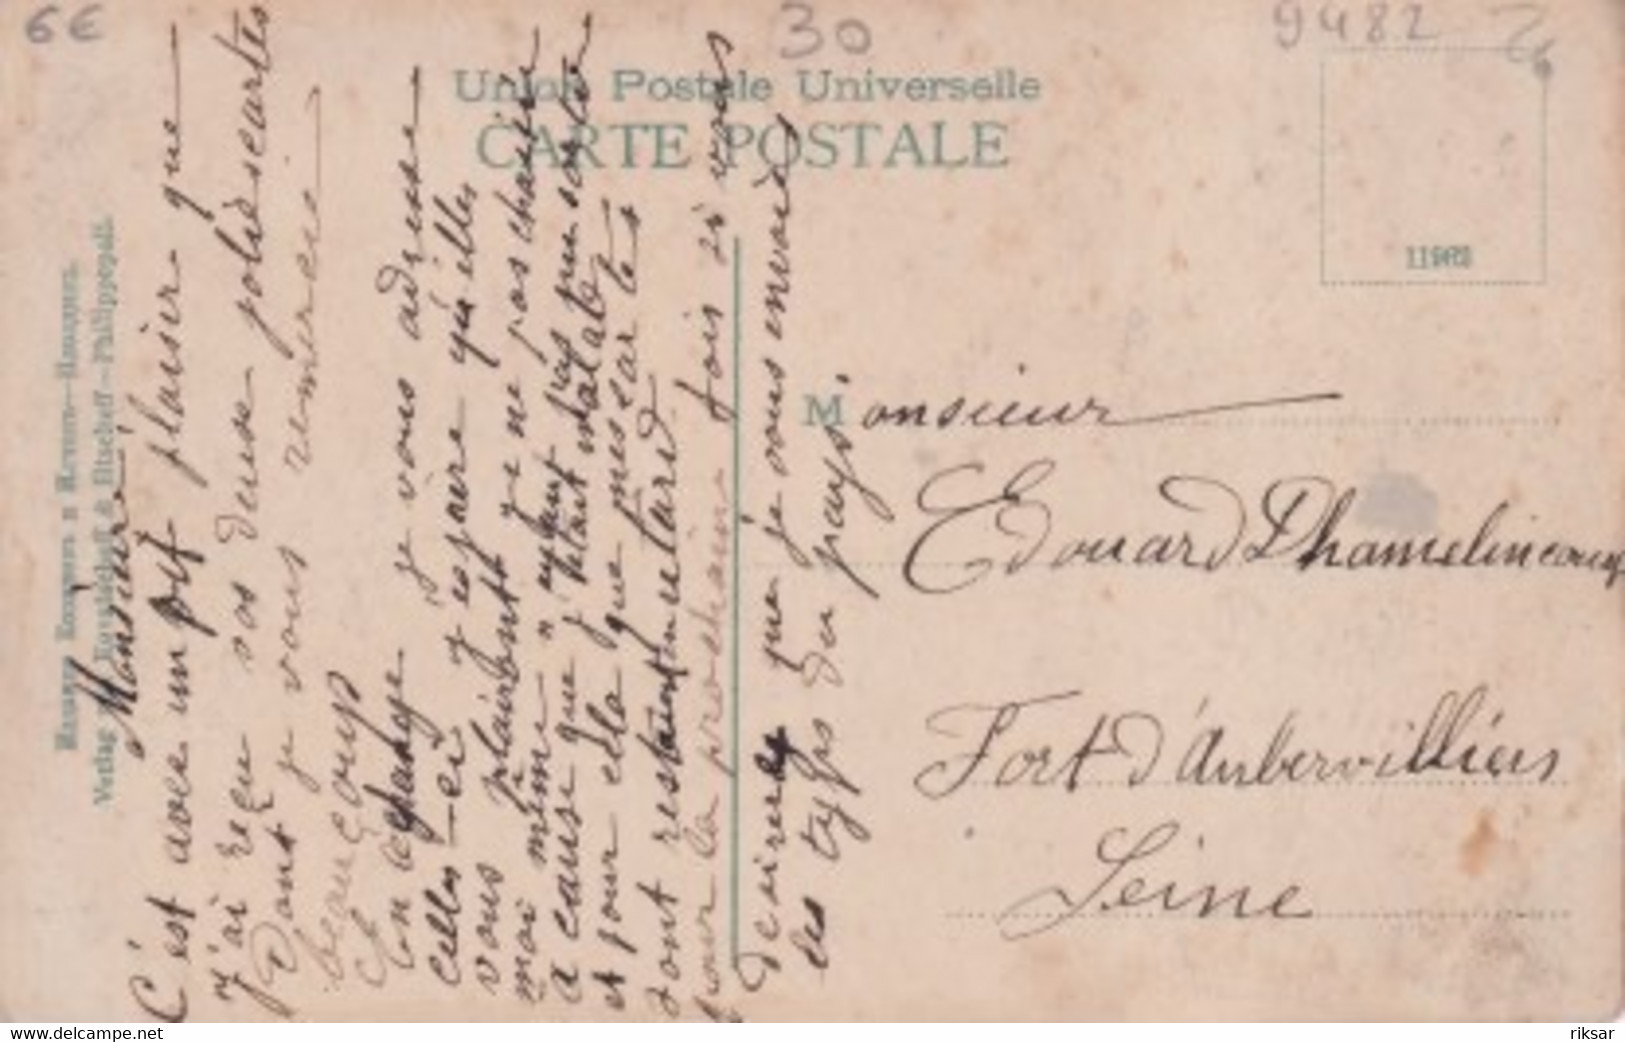 6€
30
9482
Union Postale Universelle
CARTE POSTALE
11963
Verlag & Eltscheff—Philippopoli.
Monsieur
C'est avec un vif plaisir que
j'ai reçu vos deux jolies cartes
Dont je vous remercie
beaucoup
En échange je vous adresse
celles-ci j'espère qu'elles
vous plairont je ne pas choisir
moi même n'ayant pas pu sortir
a cause que j'étais malade
et pour cela que mes cartes
sont restaient en retard
pour la prochaine fois si vous
desirez que je vous envoies
des types du pays.
Monsieur
Edouard Dhamelincourt
Fort d'Aubervilliers
Seine
www.delcampe.net
riksar